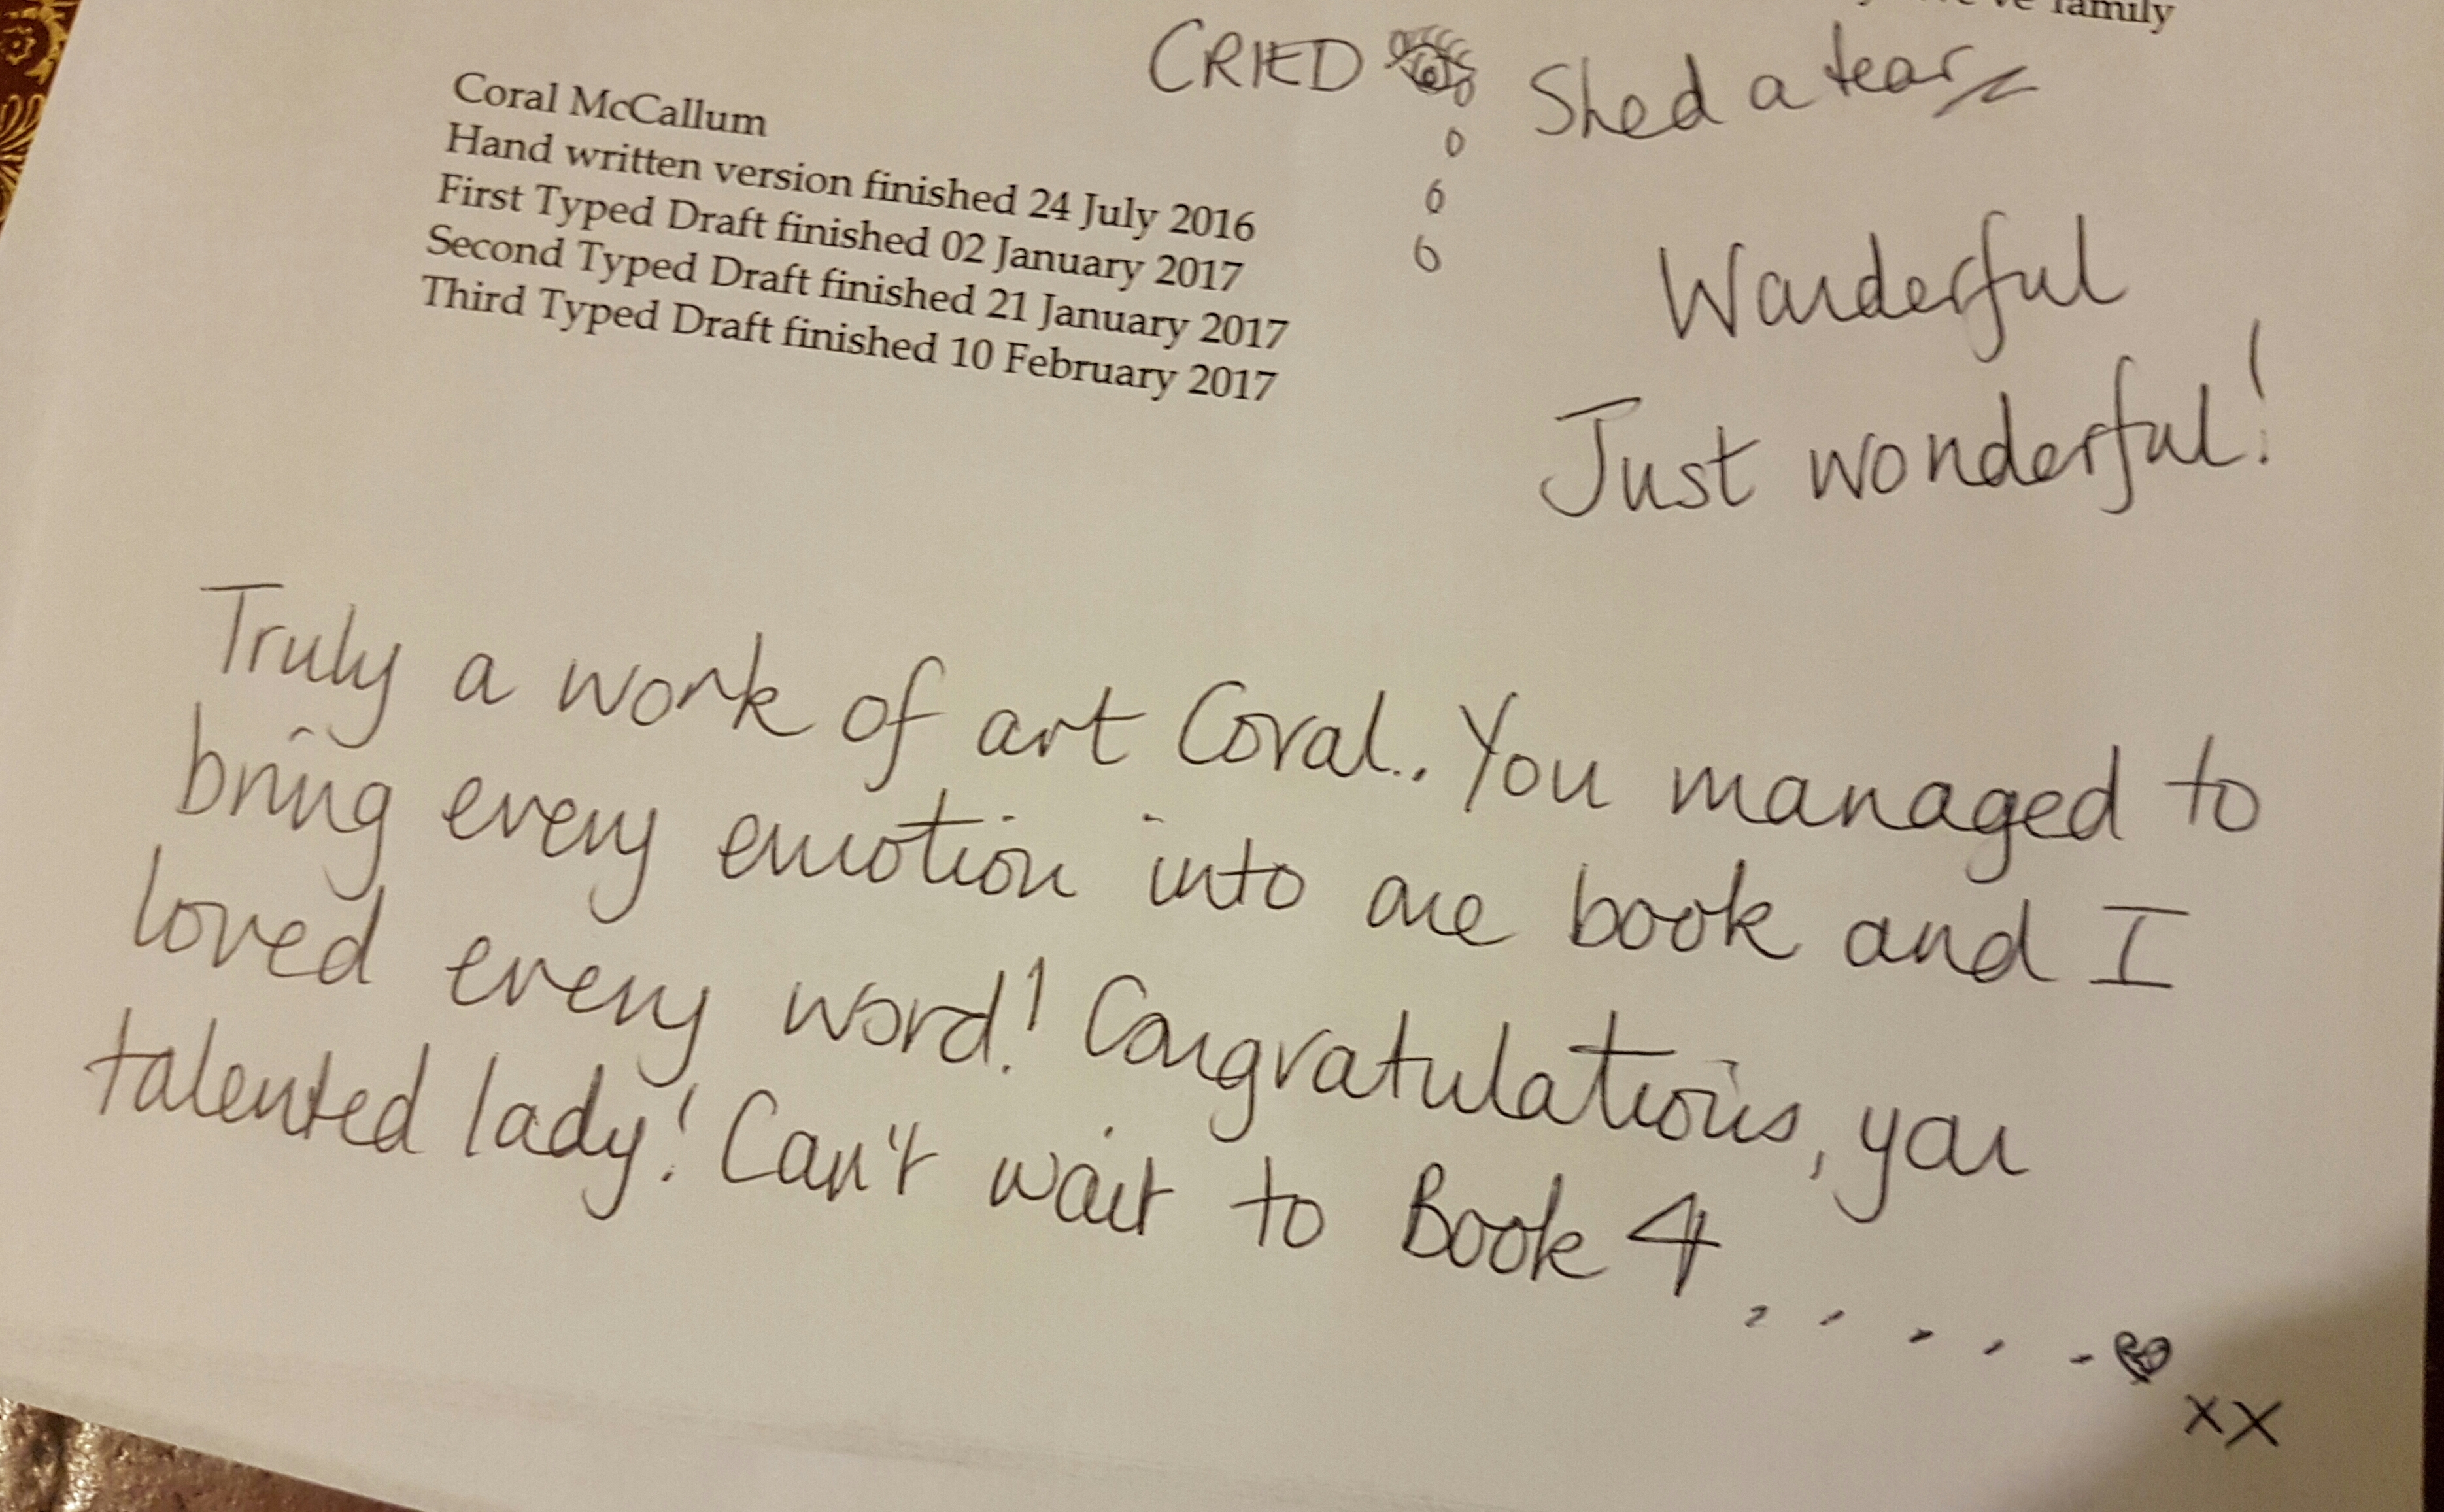 family
CRIED Shed a tear
Coral McCallum
Hand written version finished 24 July 2016
First Typed Draft finished 02 January 2017
Second Typed Draft finished 21 January 2017
Third Typed Draft finished 10 February 2017
Wonderful
Just wonderful!
Truly a work of art Coral.. You managed to
bring every emotion into one book and I
loved every word! Congratulations, you
talented lady! Can't wait to Book 4 . . . . .
xx